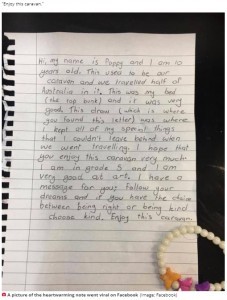 "Enjoy this caravan."
Hi, my name is Poppy and I am 10
years old. This used to be our
caravan and we travelled half of
Australia in it. This was my bed
(the top bunk) and it was very
good. This draw (which is where
you found this letter) was where
I kept all of my special things
that I couldn't leave behind when
we went travelling. I hope that
you enjoy this caravan very much
I am in grade 5 and I am
very good at art. I have a
message for you; follow your
dreams and if you have the choice
between being right or being kind
choose kind. Enjoy this caravan!
A picture of the heartwarming note went viral on Facebook (Image: Facebook)